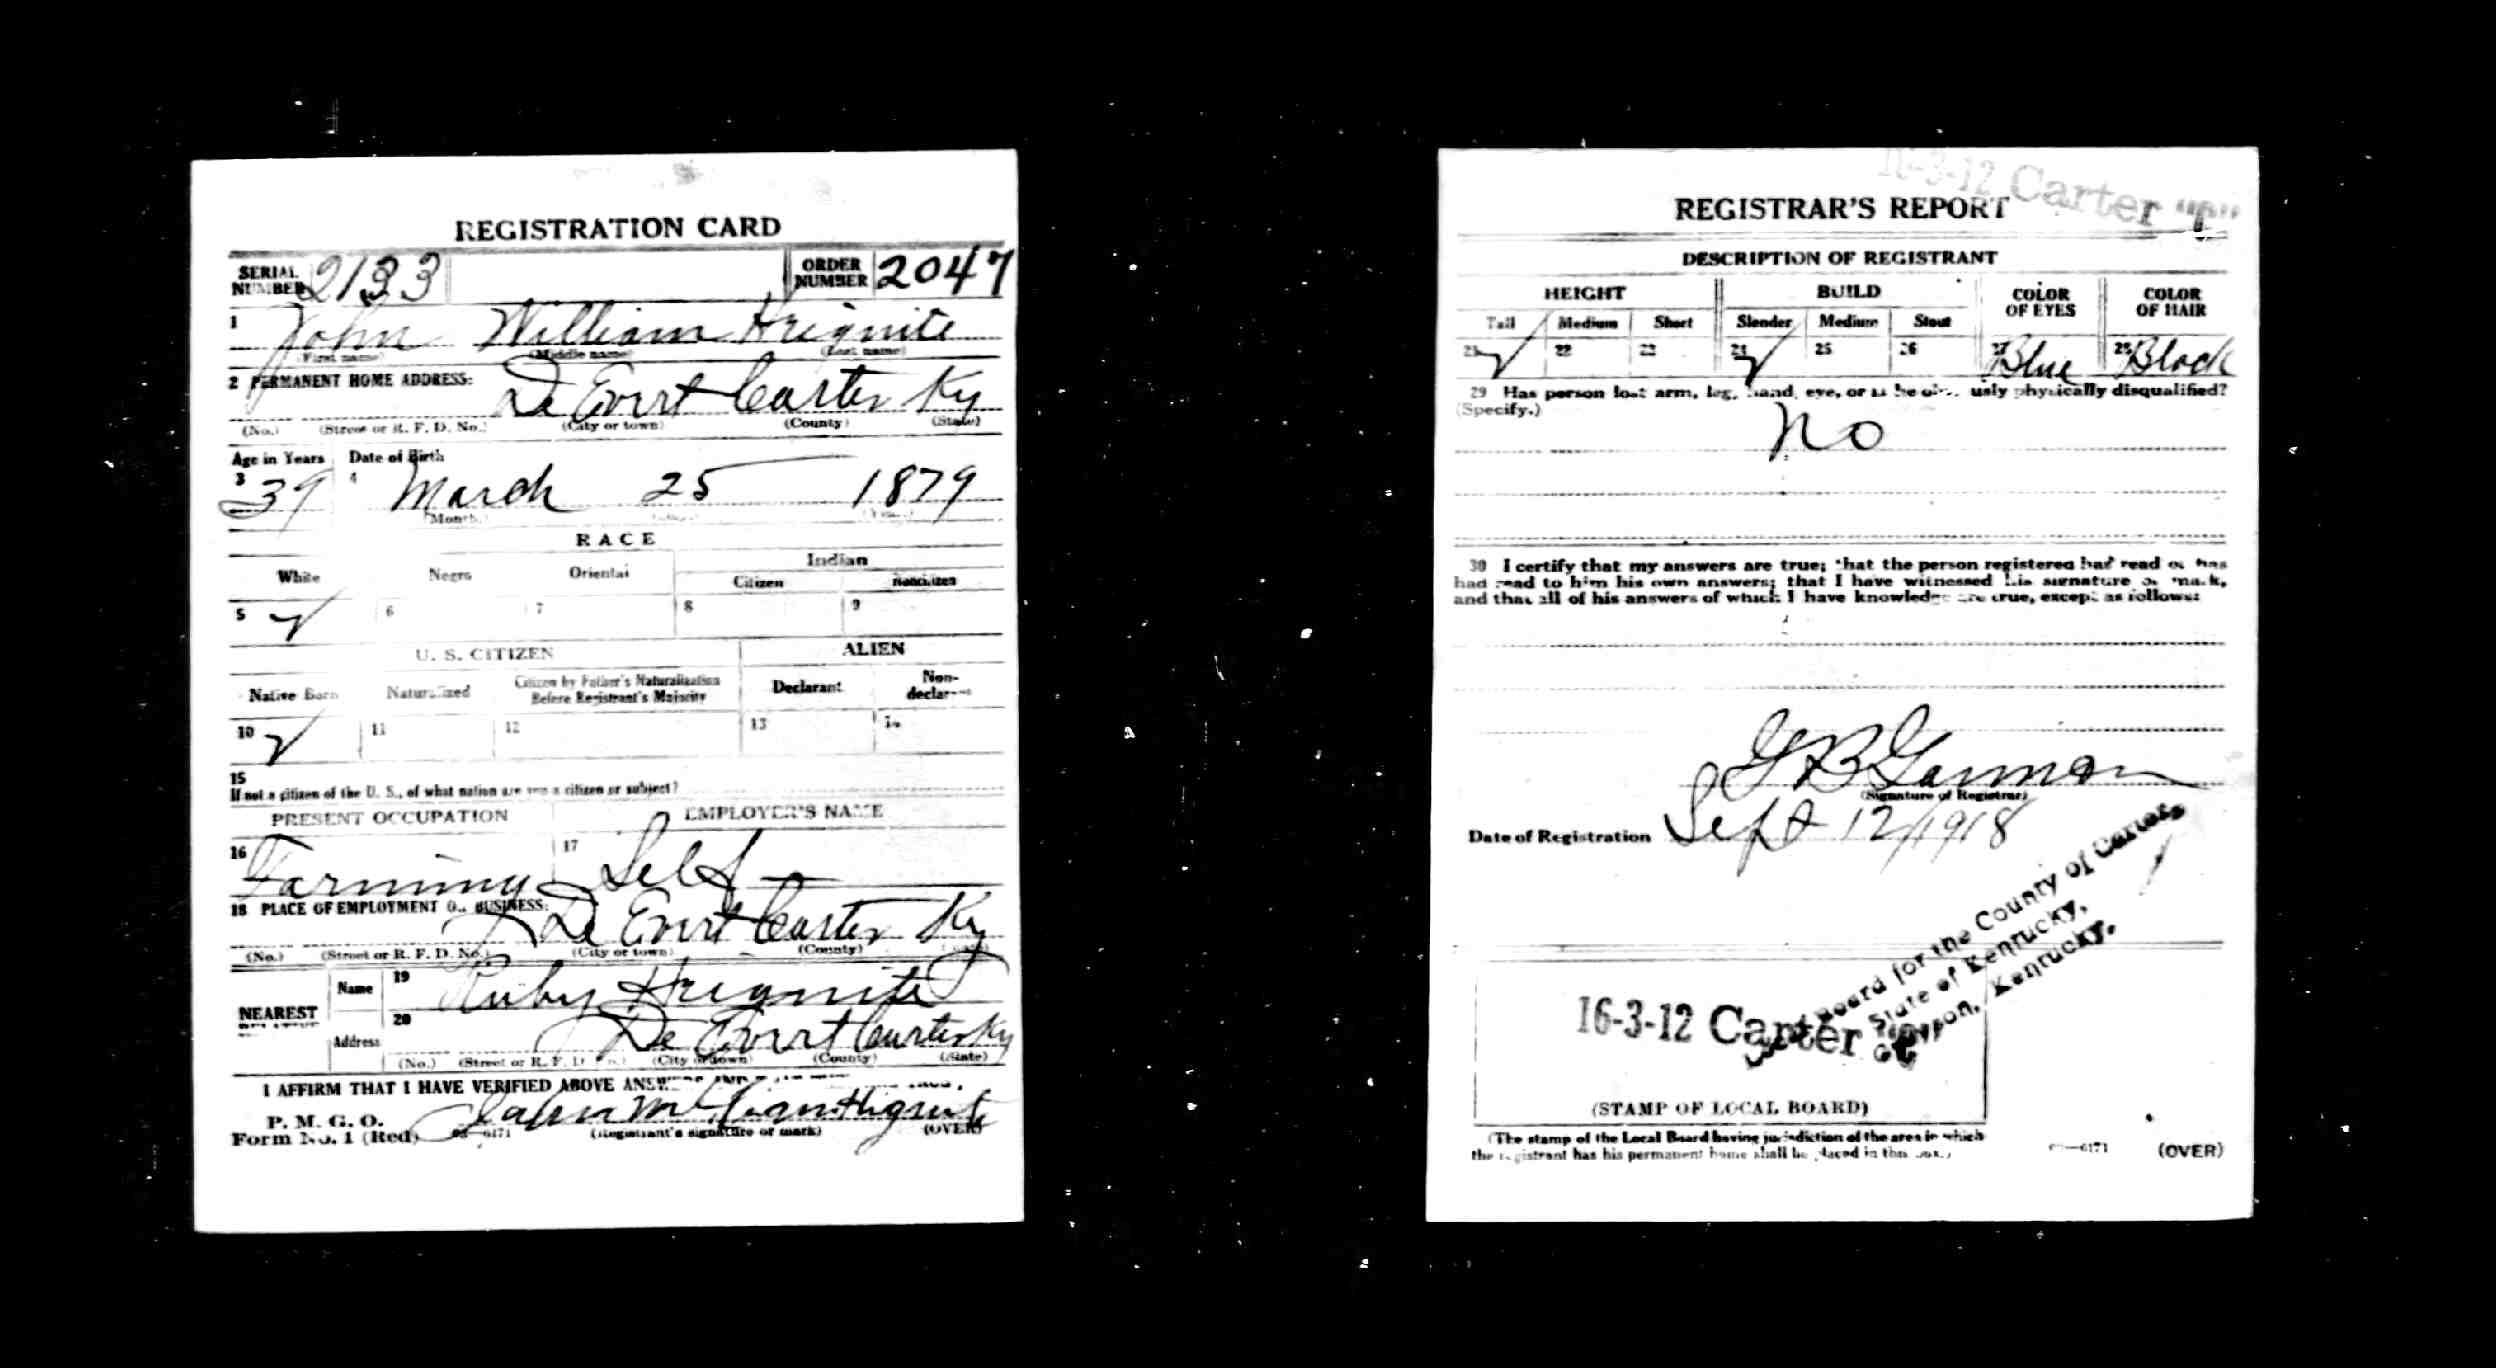 REGISTRATION CARD
SERIAL NUMBER 2133 ORDER NUMBER 2047
1 John William Hignite
(First name) (Middle name) (Last name)
2 PERMANENT HOME ADDRESS: De Evert Carter Ky
(No.) (Street or R. F. D. No.) (City or town) (County) (State)
Age in Years Date of Birth
3 39 4 March 25 1879
(Month.)
RACE
White Negro Oriental Indian
Citizen Noncitizen
5 ✓ 6 7 8 9
U. S. CITIZEN ALIEN
Native Born Naturalized Citizen by Father's Naturalization Before Registrant's Majority Declarant Non-declarant
10 ✓ 11 12 13
15
If not a citizen of the U. S., of what nation are you a citizen or subject?
PRESENT OCCUPATION EMPLOYER'S NAME
16 Farming 17 Self
18 PLACE OF EMPLOYMENT OR BUSINESS:
De Evert Carter Ky
(No.) (Street or R. F. D. No.) (City or town) (County)
NEAREST RELATIVE Name 19 Ruby Hignite
Address 20 De Evert Carter Ky
(No.) (Street or R. F. D. No.) (City or town) (County) (State)
I AFFIRM THAT I HAVE VERIFIED ABOVE ANSWERS AND
P. M. G. O.
Form No. 1 (Red) 6171 John Hignite
(Registrant's signature or mark) (OVER)
16-3-12 Carter "C"
REGISTRAR'S REPORT
DESCRIPTION OF REGISTRANT
HEIGHT BUILD COLOR OF EYES COLOR OF HAIR
Tall Medium Short Slender Medium Stout
21 ✓ 22 23 24 ✓ 25 26 27 Blue 28 Black
29 Has person lost arm, leg, hand, eye, or is he obviously physically disqualified?
(Specify.) No
30 I certify that my answers are true; that the person registered has read or has
had read to him his own answers; that I have witnessed his signature or mark,
and that all of his answers of which I have knowledge are true, except as follows:
G B Garman
(Signature of Registrar)
Date of Registration Sept 12/1918
Board for the County of Carter,
State of Kentucky,
Grayson, Kentucky.
16-3-12 Carter "C"
(STAMP OF LOCAL BOARD)
(The stamp of the Local Board having jurisdiction of the area in which
the registrant has his permanent home shall be placed in this box.)
6171 (OVER)